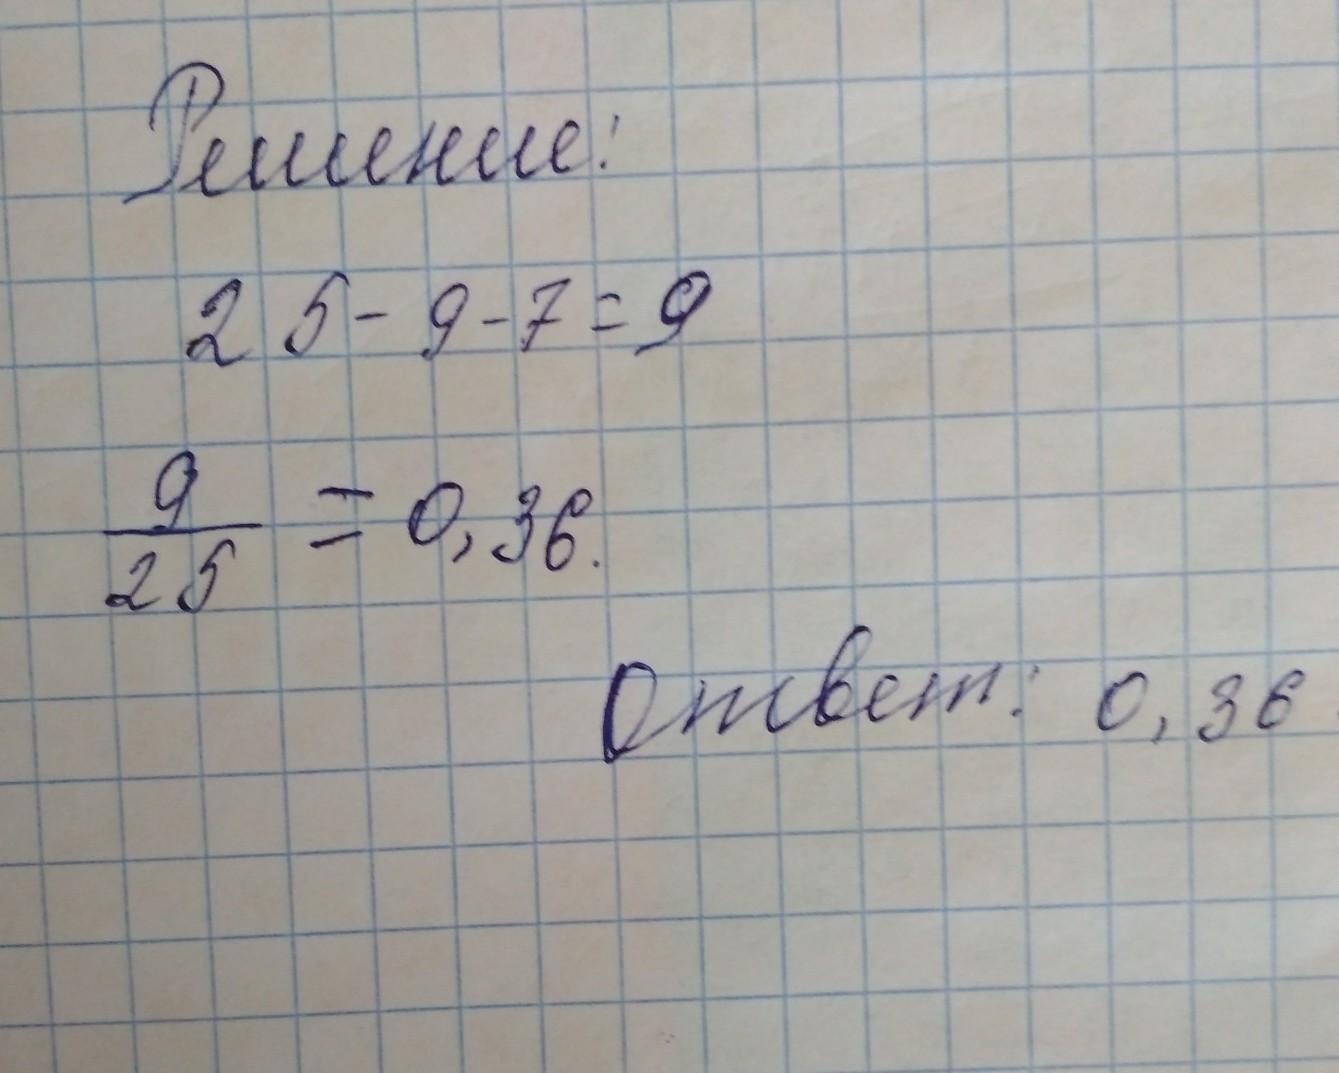 Решение:
25-9-7=9
9/25 = 0,36.
Ответ: 0,36